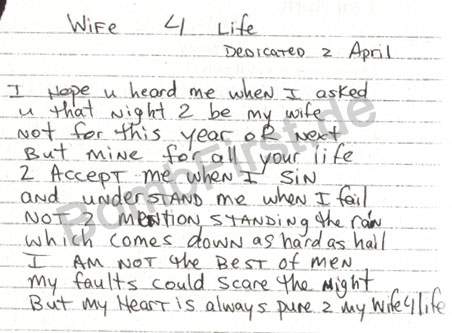 WIFE 4 Life
DEDICATED 2 April
I Hope u heard me when I asked
u that Night 2 be my wife
Not for this year OR Next
But mine for all your life
2 Accept me when I SiN
and understand me when I fail
NOT 2 mention STANDING the rain
which comes down as hard as hail
I AM NOT the BEST of MEN
my faults could scare the Night
But my Heart is always pure 2 my Wife 4 life
BombFirst.de